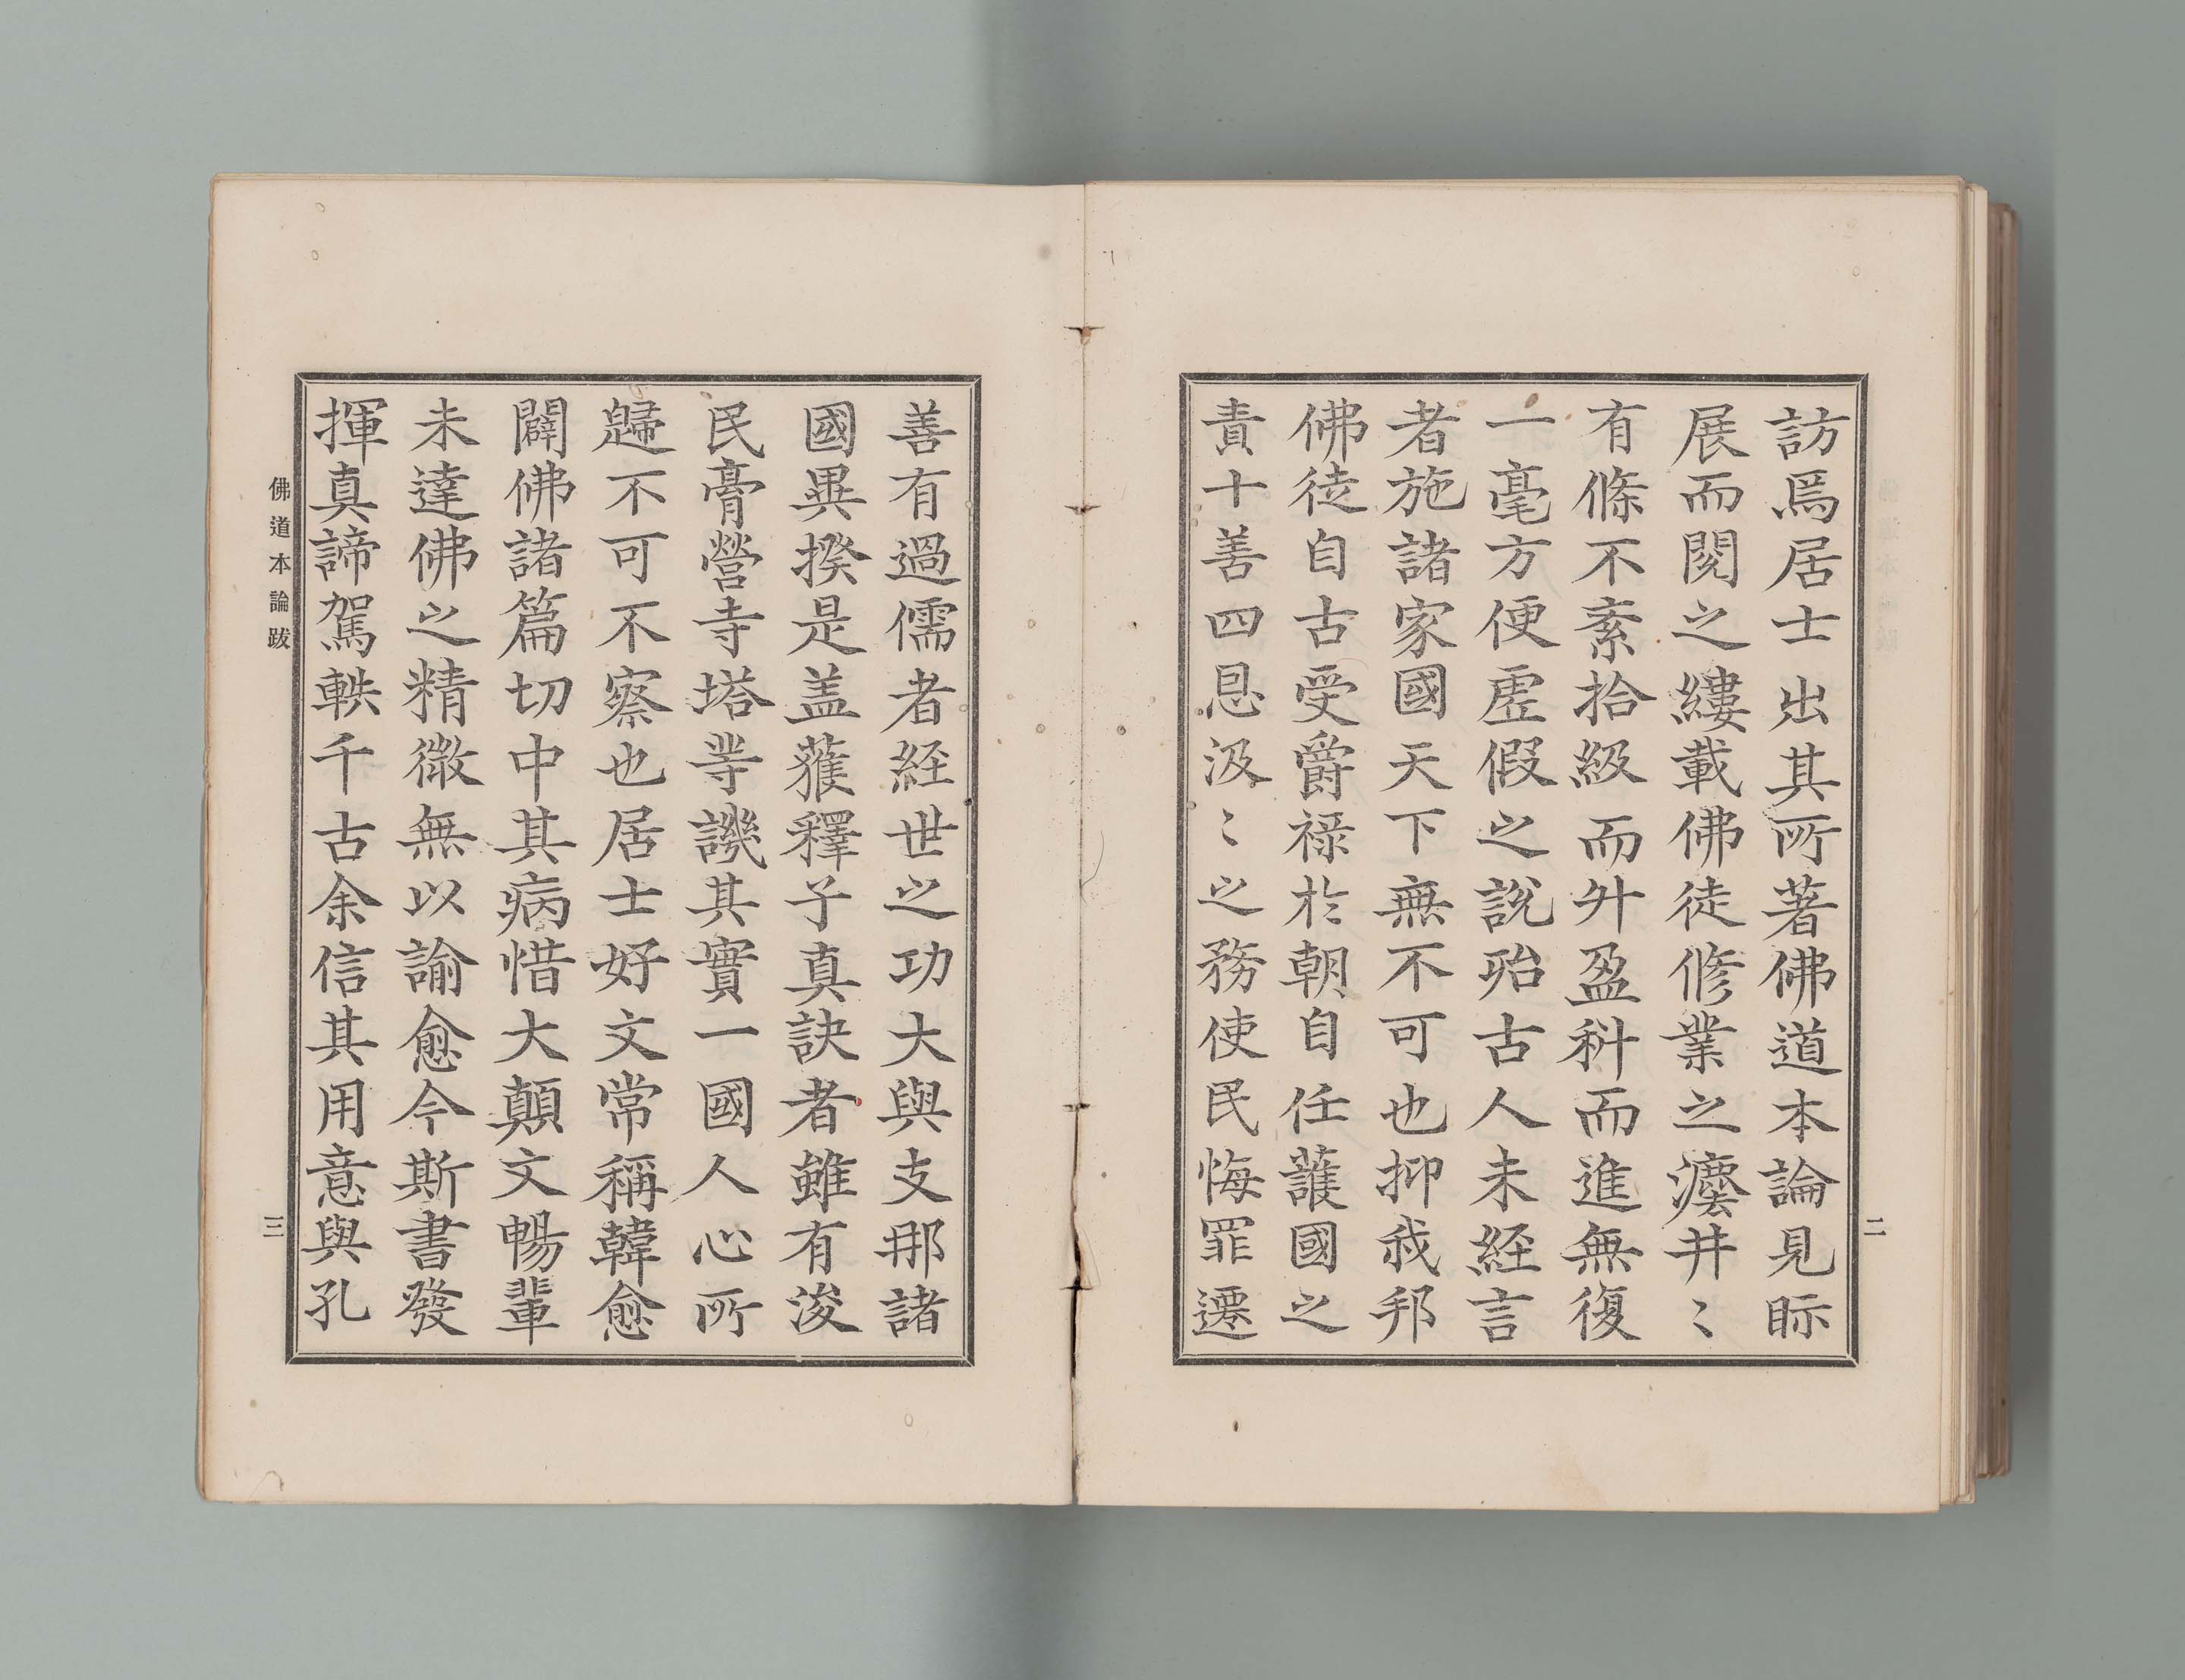 訪焉居士出其所著佛道本論見眎
展而閱之縷載佛徒修業之瀍井〻
有條不紊拾級而升盈科而進無復
一毫方便虛假之說殆古人未経言
者施諸家國天下無不可也抑我邦
佛徒自古受爵禄於朝自任護國之
責十善四恩汲〻之務使民悔罪遷
二
善有過儒者経世之功大與支那諸
國異揆是盖蒦釋子真訣者雖有浚
民膏營寺塔等譏其實一國人心所
歸不可不察也居士好文常稱韓愈
闢佛諸篇切中其病惜大顛文暢輩
未達佛之精微無以諭愈今斯書發
揮真諦駕軼千古余信其用意與孔
佛道本論跋
三